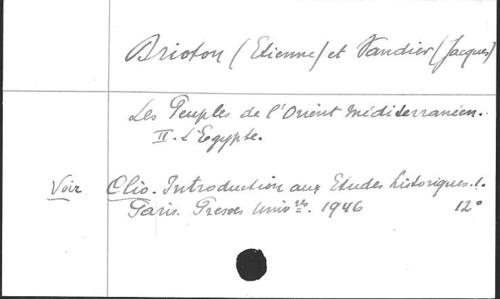 Brioton (Etienne) et Vandier (Jacques)
Les Peuples de l'Orient Méditerranéen.
II. L'Egypte.
Voir Clio. Introduction aux Etudes historiques. 1.
Paris. Presses Univ.res. 1946 12°